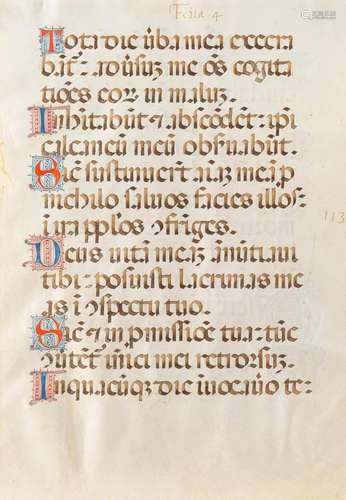 Feria 4
Tota die v̄ba mea execra
bāt: adūsuz me oēs cogita
tiões eoꝝ in maluz.
Inhītabūt & abscōdēt: ip̄i
calcaneū meū obsūabūt.
Sic̄ sustinuerūt aīaz meā p
nichilo saluos facies illos:
ī ira pp̄los cōfriges.
Deus uitā meaz ānūtiaui
tibi: posuisti lacrimas me
as ī cōspectu tuo.
Sic̄ & in pmissiōe tua: tūc
ōuertēt inīci mei retrorsuz.
In quacūqꝫ die īuocauo te:
113